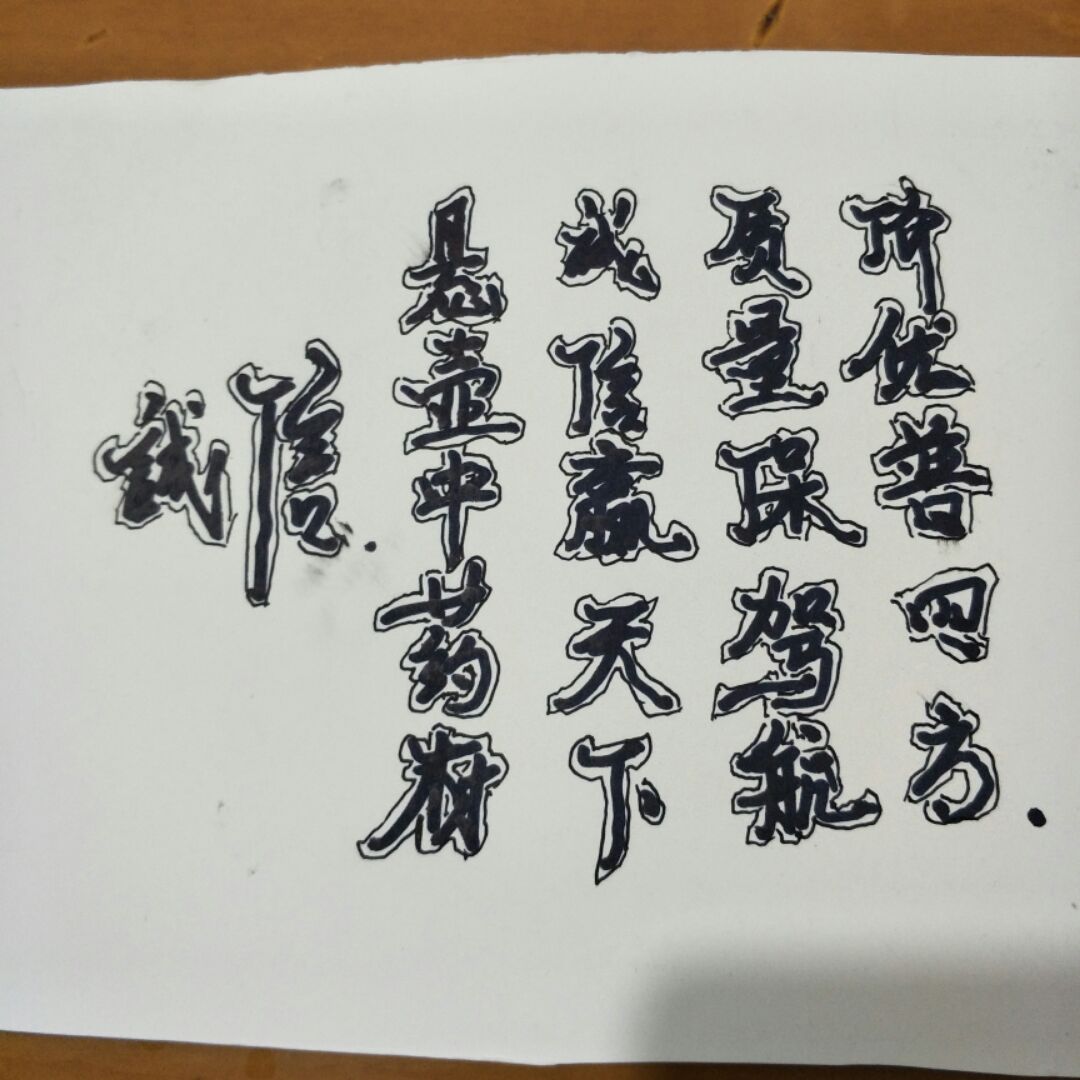 誠信.
悬壶中药材
诚信赢天下
质量保驾航
价优普四方.